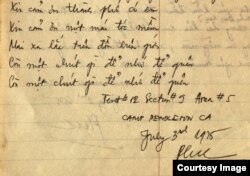 Xin cảm ơn thành phố có em
Xin cảm ơn một mái tóc mềm
Mai xa lắc trên đồn biên giới
Còn một chút gì để nhớ để quên
Còn một chút gì để nhớ để quên
Tent # 12 Section # J Area # 5
CAMP PENDLETON CA
July 3rd 1975
Courtesy Image